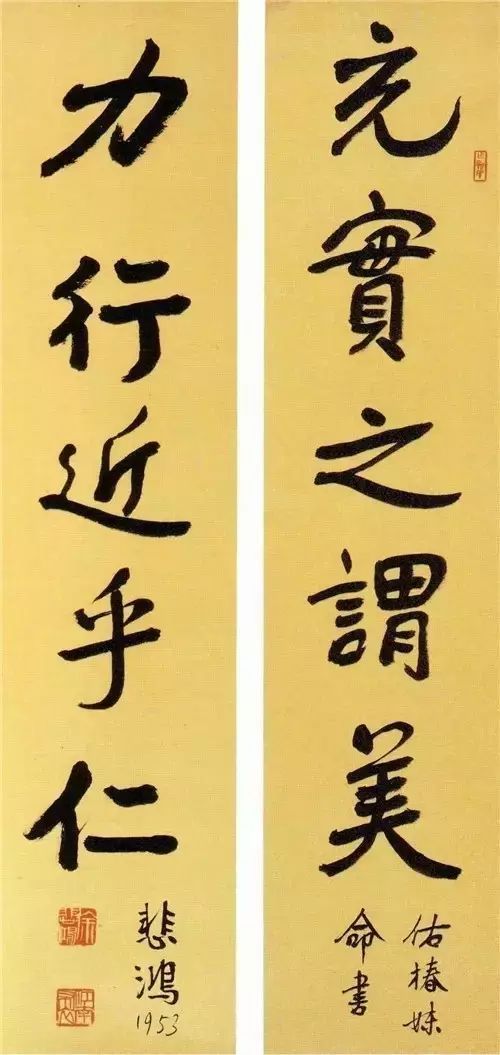 充實之謂美
佑椿妹
命書
力行近乎仁
悲鴻
1953